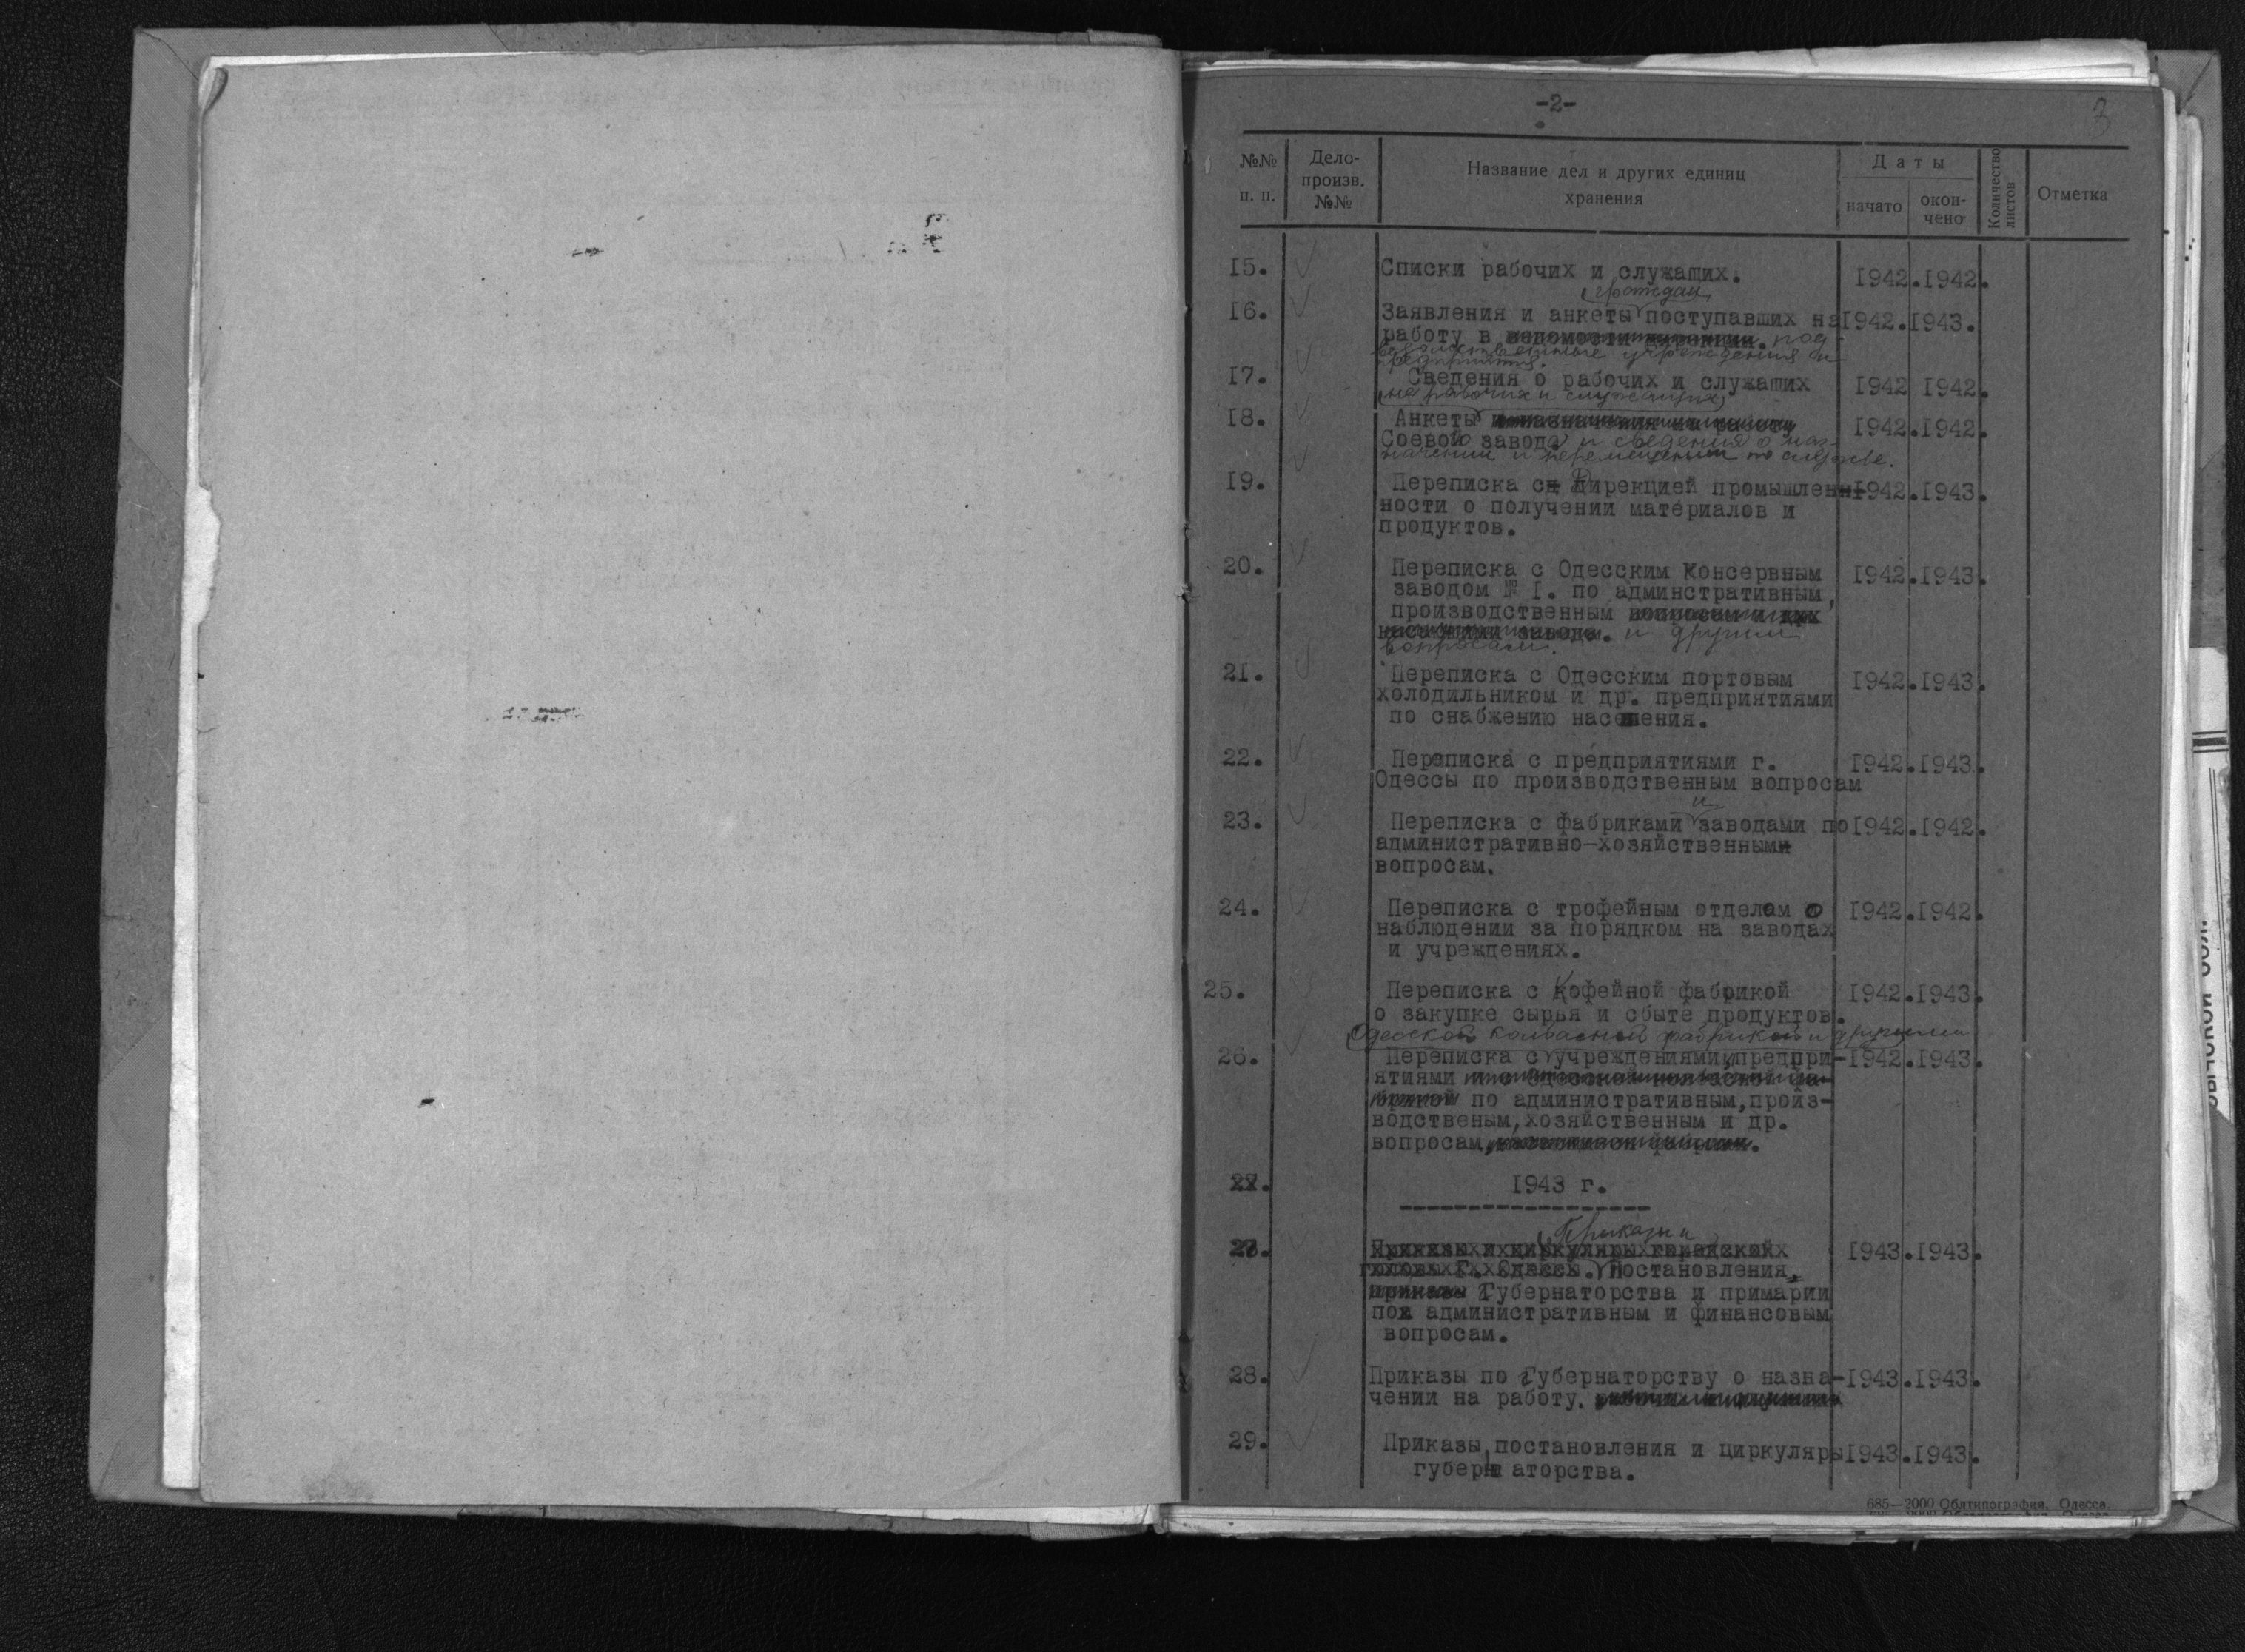 -2-
3
№№ п. п.
Дело-произв. №№
Название дел и других единиц хранения
Даты
начато
окон-чено
Количество листов
Отметка
15. Списки рабочих и служащих. 1942. 1942.
граждан
16. Заявления и анкеты поступавших на 1942. 1943.
работу в ведомости дирекции. под-
ведомственные учреждения и
предприятия.
17. Сведения о рабочих и служащих 1942 1942.
на рабочих и служащих
18. Анкеты и назначения на работу 1942. 1942.
Соевого завода и сведения о наз-
начении и перемещении по службе.
19. Переписка с Дирекцией промышлен- 1942. 1943.
ности о получении материалов и
продуктов.
20. Переписка с Одесским Консервным 1942. 1943.
заводом № I. по админстративным,
производственным вопросам и
завода. и другим
вопросам.
21. Переписка с Одесским портовым 1942. 1943.
холодильником и др. предприятиями
по снабжению населения.
22. Переписка с предприятиями г. 1942. 1943.
Одессы по производственным вопросам
и
23. Переписка с фабриками заводами по 1942. 1942.
административно-хозяйственным
вопросам.
24. Переписка с трофейным отделом о 1942. 1942.
наблюдении за порядком на заводах
и учреждениях.
25. Переписка с Кофейной фабрикой 1942. 1943.
о закупке сырья и сбыте продуктов.
Одесской колбасной фабрикой и другими
26. Переписка с учреждениями, предпри- 1942. 1943.
ятиями и с Одесской колбасной фа-
брикой по административным, произ-
водственым, хозяйственным и др.
вопросам,
1943 г.
Приказы и
27. Приказы и циркуляры городской 1943. 1943.
головы Г. Одессы. Постановления,
приказы Губернаторства и примарии
по административным и финансовым
вопросам.
28. Приказы по Губернаторству о назна- 1943. 1943.
чении на работу.
29. Приказы, постановления и циркуляры 1943. 1943.
губернаторства.
685—2000 Облтипография. Одесса.